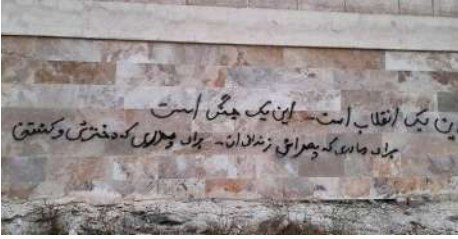 ین یک انقلاب است_ این یک جنگ است
برای مادری که پسراش زندان ان_ برای پدری که دخترش و کشتن